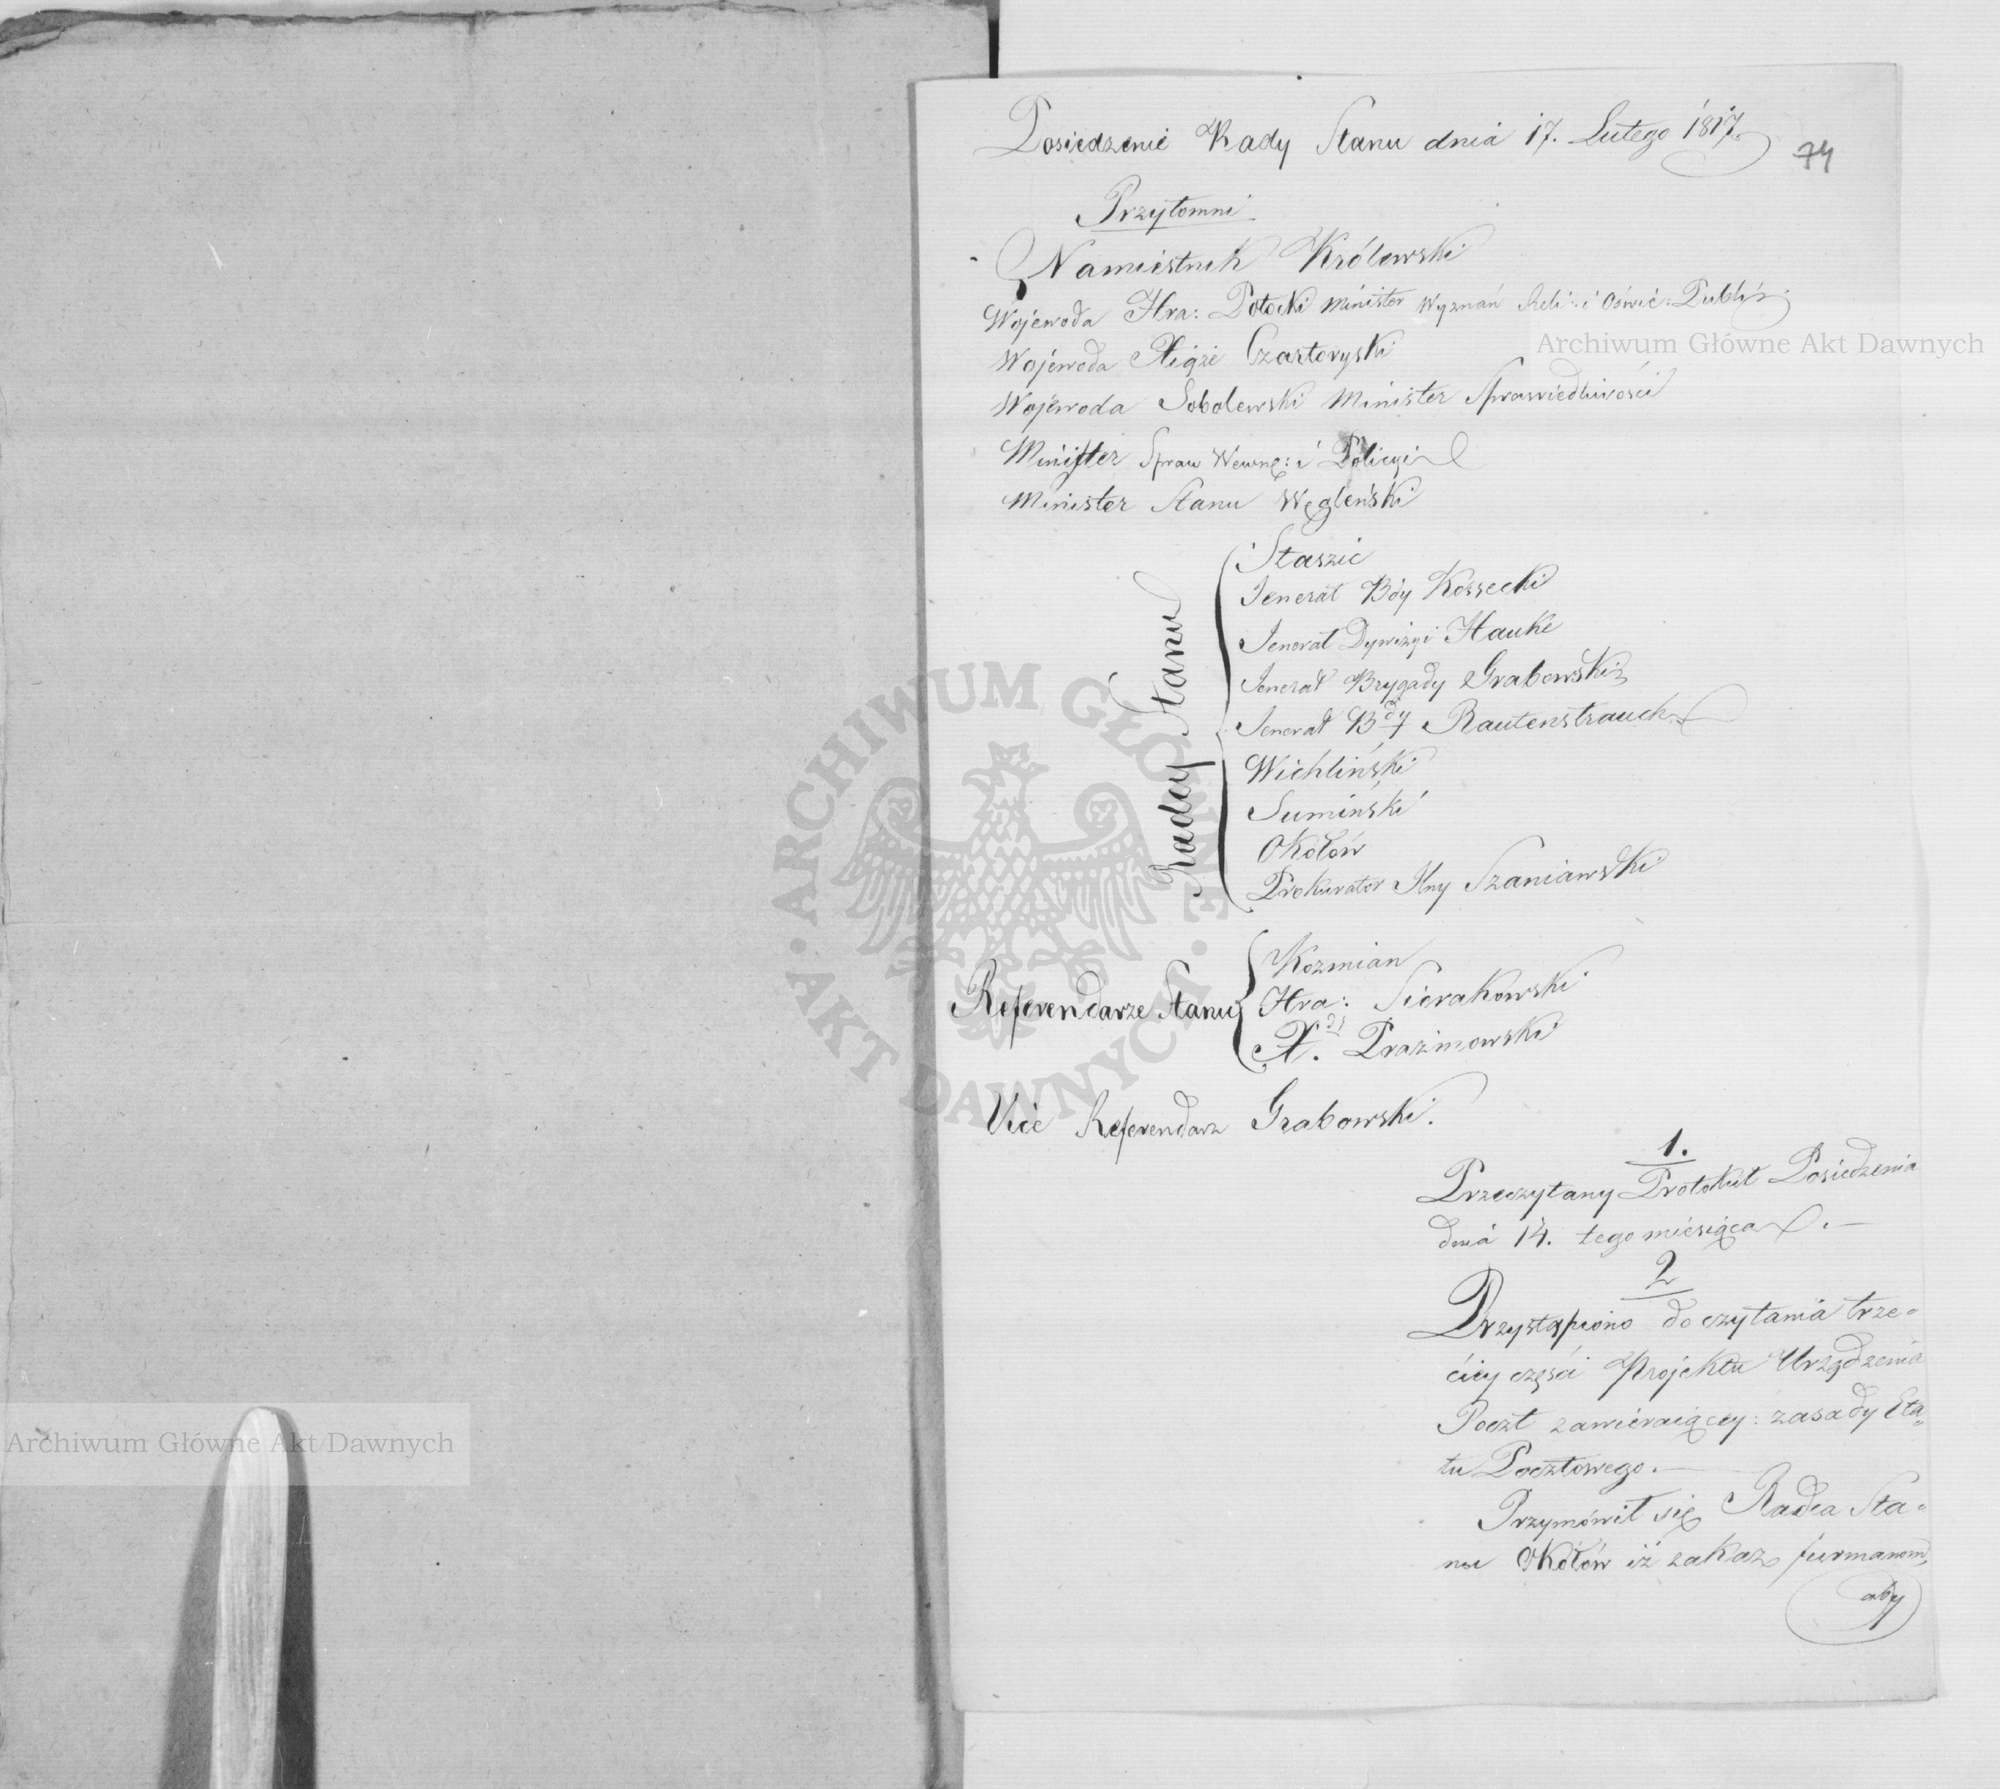 Posiedzenie Rady Stanu dnia 17. Lutego 1817.
74
Przytomni
Namiestnik Królewski
Wojewoda Hra: Potocki Minister Wyznań Reli: i Oświe: Publi:
Archiwum Główne Akt Dawnych
Wojewoda Xiąże Czartoryski
Wojewoda Sobolewski Minister Sprawiedliwości
Minister Spraw Wewnę: i Policyi
Minister Stanu Węgleński
Radcy Stanu
Staszic
Jenerał Bdy Kossecki
Jenerał Dywizyi Hauke
Jenerał Brygady Grabowski
Jenerał Bdy Rautenstrauch
Wichliński
Sumiński
Okołów
Prokurator Szaniawski
Referendarze Stanu
Kozmian
Hra: Sierakowski
X. Prażmowski
Vice Referendarz Grabowski.
1.
Przeczytany Protokuł Posiedzenia
dnia 14. tego miesiąca.
2
Przystąpiono do czytania trze-
ciey części Projektu Urządzenia
Poczt zawieraiącey: zasady Eta-
tu Pocztowego.
Przymówił się Radca Sta-
nu Okołów iż zakaz furmanom,
aby
Archiwum Główne Akt Dawnych
ARCHIWUM GŁÓWNE AKT DAWNYCH